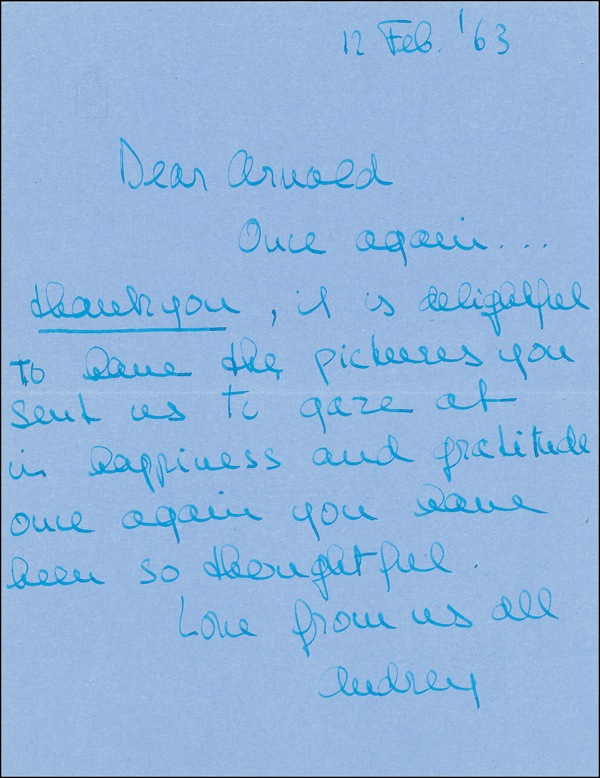 12 Feb. '63
Dear Arnold
Once again...
thank you, it is delightful
to have the pictures you
sent us to gaze at
in happiness and gratitude
once again you have
been so thoughtful.
Love from us all
Audrey